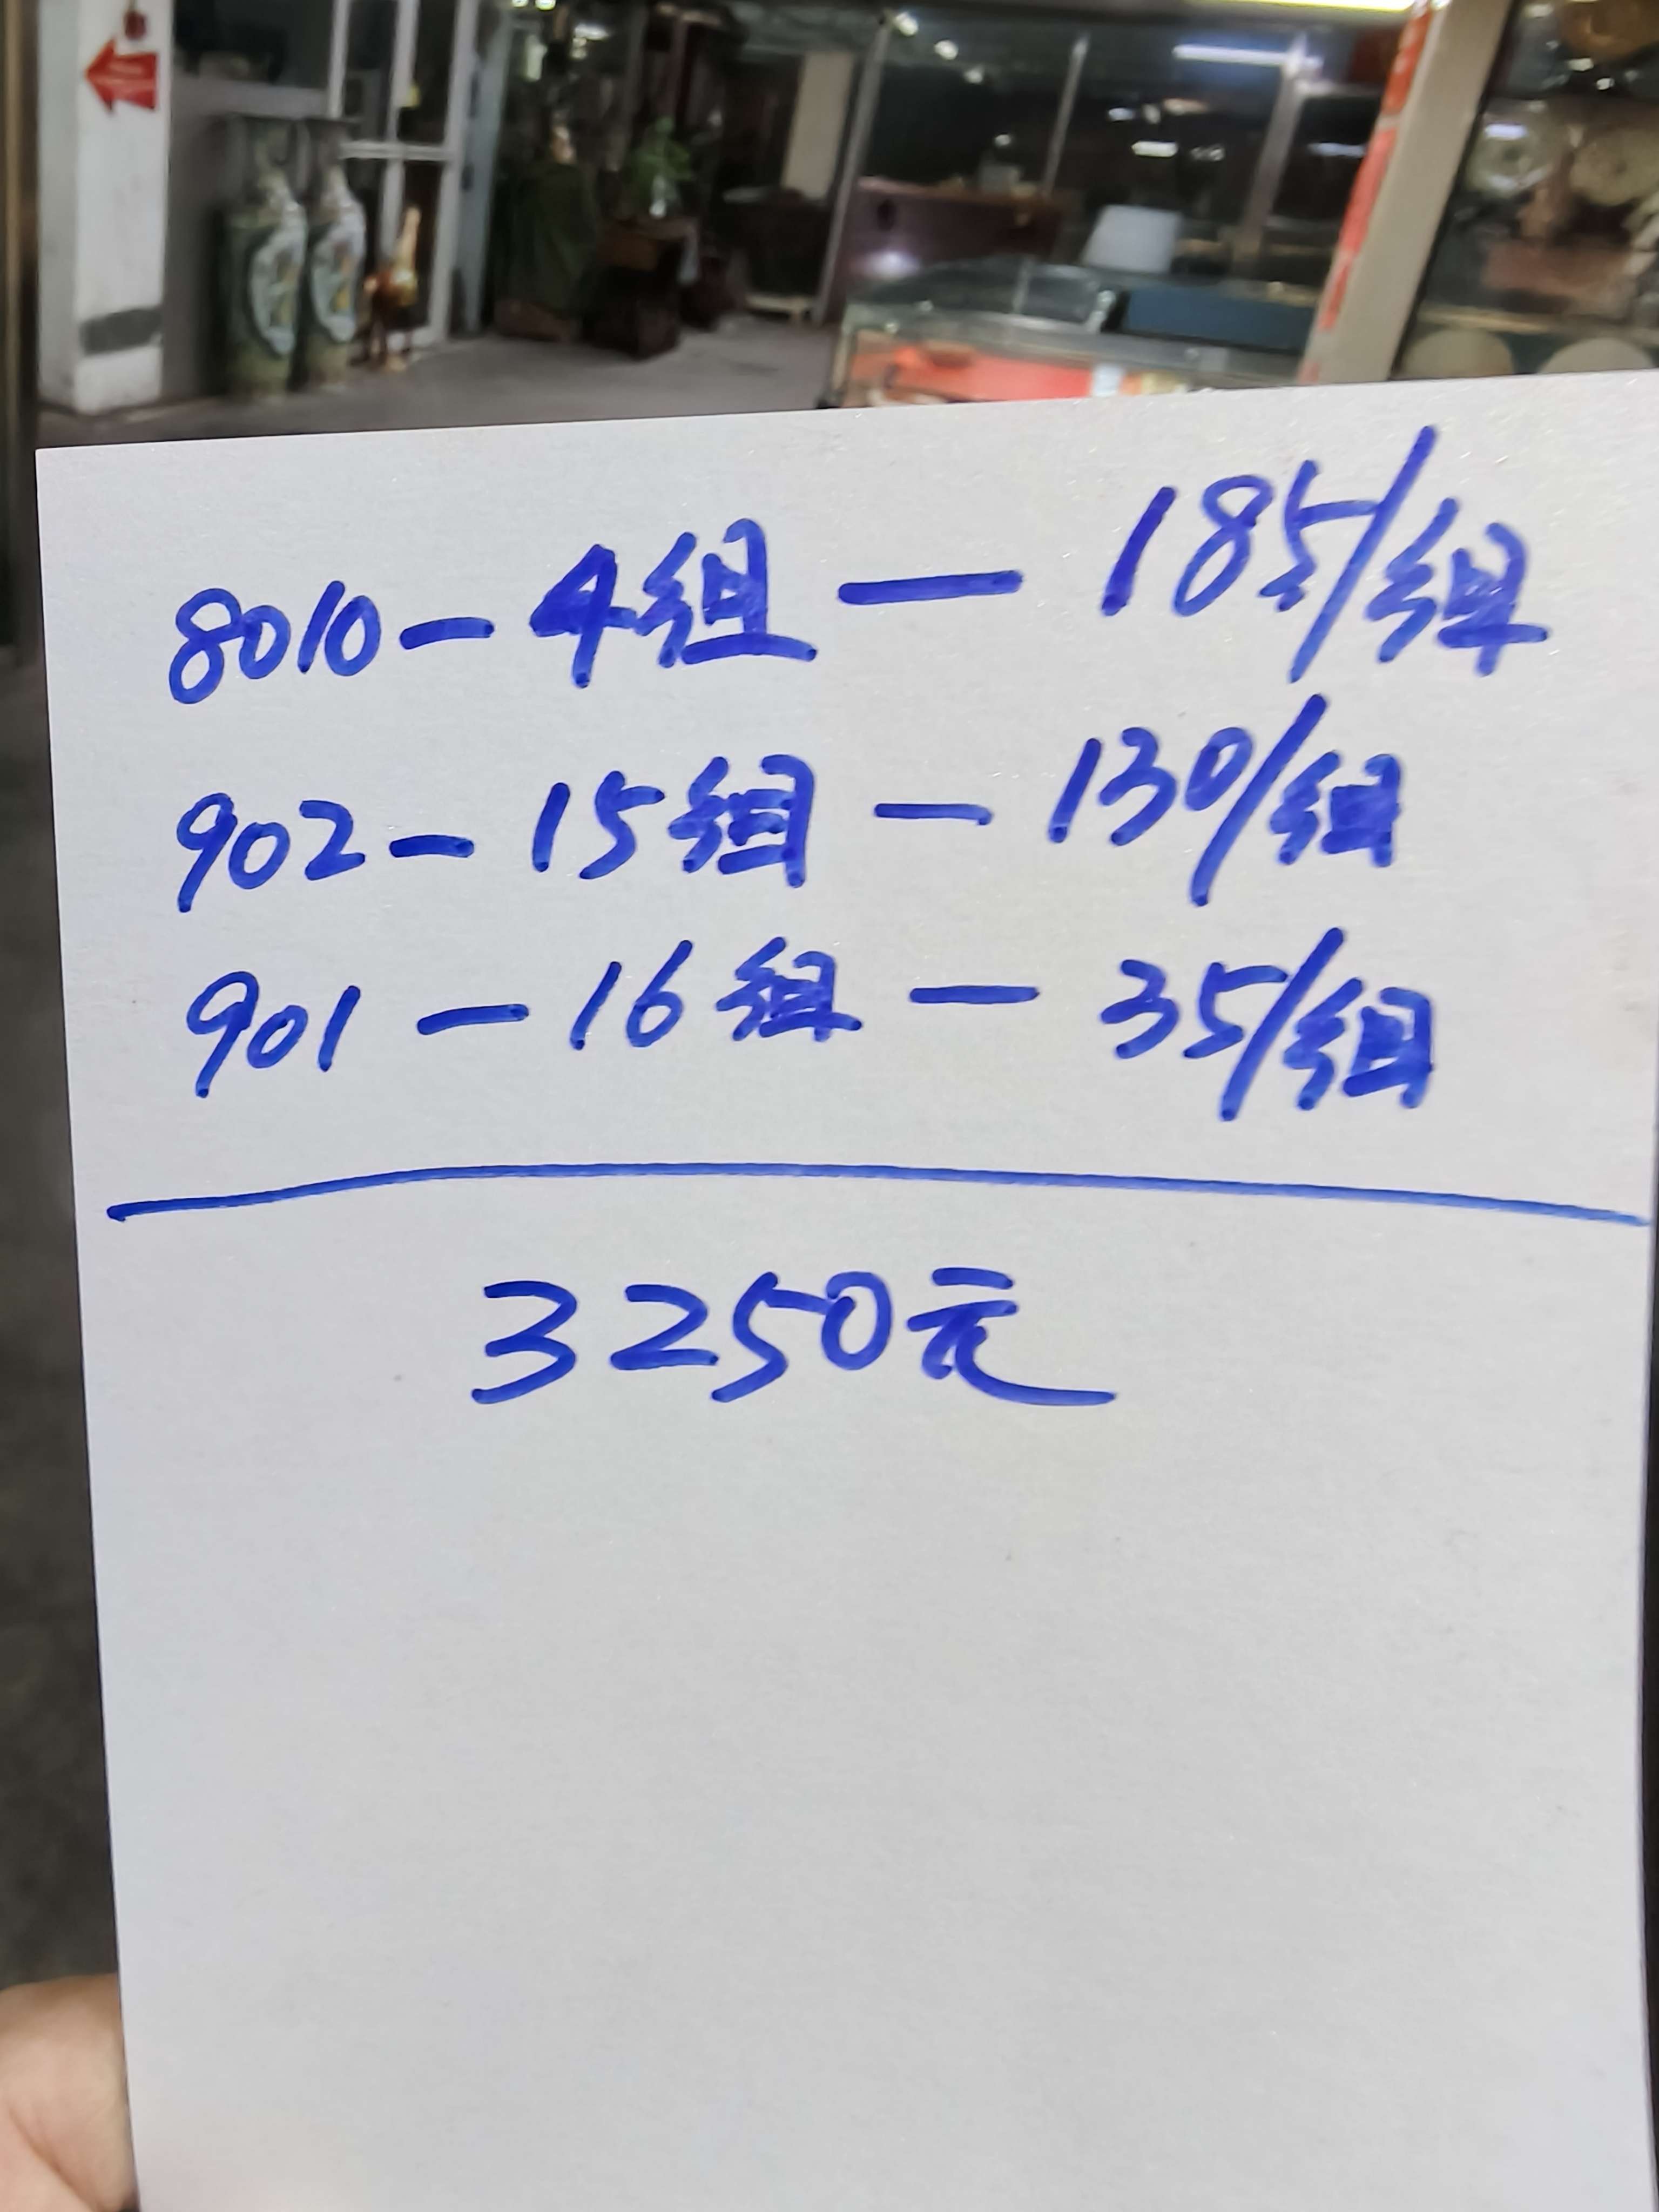 8010-4组-185/组
902-15组-130/组
901-16组-35/组
3250元